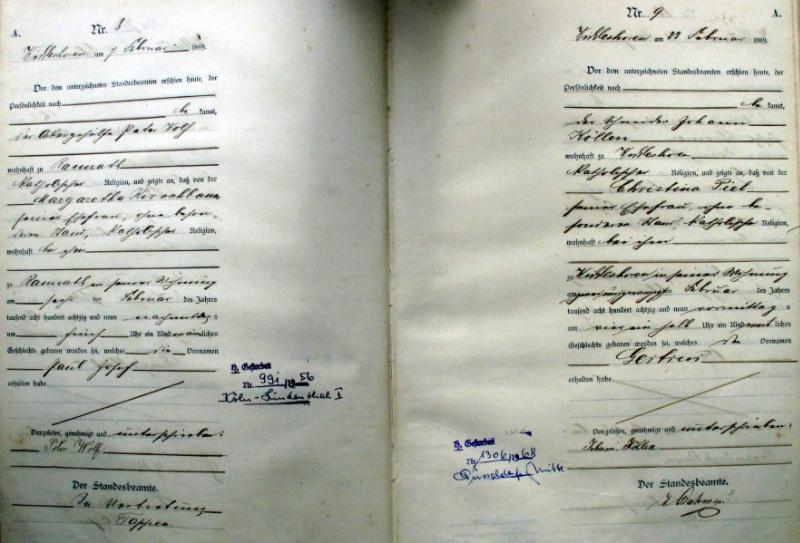 A.
Nr. 8
am 7 Februar 1889.
Vor dem unterzeichneten Standesbeamten erschien heute, der
Persönlichkeit nach
be kannt,
der Peter Wolf
wohnhaft zu Ramrath
katholischer Religion, und zeigte an, daß von der
Margaretha Kirschbaum
seiner Ehefrau, ohne beson-
deren Stand, katholischer Religion,
wohnhaft bei ihm
zu Ramrath in seiner Wohnung
am Februar des Jahres
tausend acht hundert achtzig und neun nachmittags
um fünf Uhr ein Kind männlichen
Geschlechts geboren worden sei, welches die Vornamen
Paul Josef
erhalten habe.
Vorgelesen, genehmigt und unterschrieben:
Peter Wolf
Der Standesbeamte.
In Vertretung
H. Gestorben
Nr. 991/1956
Köln-Lindenthal I
Nr. 9
A.
am 23 Februar 1889.
Vor dem unterzeichneten Standesbeamten erschien heute, der
Persönlichkeit nach
be kannt,
der Schneider Johann
Köllen
wohnhaft zu
katholischer Religion, und zeigte an, daß von der
Christina Piel
seiner Ehefrau, ohne be-
sonderen Stand, katholischer Religion,
wohnhaft bei ihm
zu in seiner Wohnung
am Februar des Jahres
tausend acht hundert achtzig und neun vormittags
um ein halb Uhr ein Kind weiblichen
Geschlechts geboren worden sei, welches die Vornamen
Gertrud
erhalten habe.
Vorgelesen, genehmigt und unterschrieben:
Johann Köllen
Der Standesbeamte.
H. Gestorben
Nr. 1306/1968
Düsseldorf Mitte